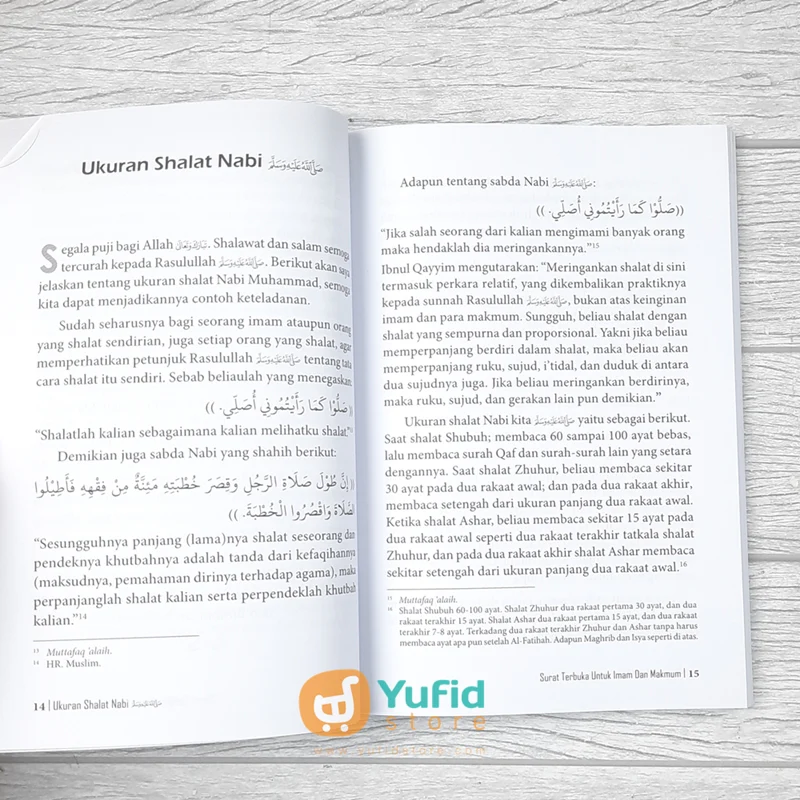 Ukuran Shalat Nabi ﷺ
Segala puji bagi Allah تَبَارَكَ وَتَعَالَى. Shalawat dan salam semoga
tercurah kepada Rasulullah ﷺ. Berikut akan saya
jelaskan tentang ukuran shalat Nabi Muhammad, semoga
kita dapat menjadikannya contoh keteladanan.
Sudah seharusnya bagi seorang imam ataupun orang
yang shalat sendirian, juga setiap orang yang shalat, agar
memperhatikan petunjuk Rasulullah ﷺ tentang tata
cara shalat itu sendiri. Sebab beliaulah yang menegaskan:
((صَلُّوْا كَمَا رَأَيْتُمُونِي أُصَلِّي. ))
“Shalatlah kalian sebagaimana kalian melihatku shalat.”13
Demikian juga sabda Nabi yang shahih berikut:
((إِنَّ طُوْلَ صَلَاةِ الرَّجُلِ وَقِصَرَ خُطْبَتِهِ مَئِنَّةٌ مِنْ فِقْهِهِ فَأَطِيْلُوا
الصَّلَاةَ وَاقْصُرُوا الْخُطْبَةَ. ))
“Sesungguhnya panjang (lama)nya shalat seseorang dan
pendeknya khutbahnya adalah tanda dari kefaqihannya
(maksudnya, pemahaman dirinya terhadap agama), maka
perpanjanglah shalat kalian serta perpendeklah khutbah
kalian.”14
13 Muttafaq ‘alaih.
14 HR. Muslim.
14 | Ukuran Shalat Nabi ﷺ
Adapun tentang sabda Nabi ﷺ:
((صَلُّوْا كَمَا رَأَيْتُمُونِي أُصَلِّي. ))
“Jika salah seorang dari kalian mengimami banyak orang
maka hendaklah dia meringankannya.”15
Ibnul Qayyim mengutarakan: “Meringankan shalat di sini
termasuk perkara relatif, yang dikembalikan praktiknya
kepada sunnah Rasulullah ﷺ, bukan atas keinginan
imam dan para makmum. Sungguh, beliau shalat dengan
shalat yang sempurna dan proporsional. Yakni jika beliau
memperpanjang berdiri dalam shalat, maka beliau akan
memperpanjang ruku, sujud, i’tidal, dan duduk di antara
dua sujudnya juga. Jika beliau meringankan berdirinya,
maka ruku, sujud, dan gerakan lain pun demikian.”
Ukuran shalat Nabi kita ﷺ yaitu sebagai berikut.
Saat shalat Shubuh; membaca 60 sampai 100 ayat bebas,
lalu membaca surah Qaf dan surah-surah lain yang setara
dengannya. Saat shalat Zhuhur, beliau membaca sekitar
30 ayat pada dua rakaat awal; dan pada dua rakaat akhir,
membaca setengah dari ukuran panjang dua rakaat awal.
Ketika shalat Ashar, beliau membaca sekitar 15 ayat pada
dua rakaat awal seperti dua rakaat terakhir tatkala shalat
Zhuhur, dan pada dua rakaat akhir shalat Ashar membaca
sekitar setengah dari ukuran panjang dua rakaat awal.16
15 Muttafaq ‘alaih.
16 Shalat Shubuh 60-100 ayat. Shalat Zhuhur dua rakaat pertama 30 ayat, dan dua
rakaat terakhir 15 ayat. Shalat Ashar dua rakaat pertama 15 ayat, dan dua rakaat
terakhir 7-8 ayat. Terkadang dua rakaat terakhir Zhuhur dan Ashar tanpa harus
membaca ayat apa pun setelah Al-Fatihah. Adapun Maghrib dan Isya seperti di atas.
Surat Terbuka Untuk Imam Dan Makmum | 15
Yufid
store
www.yufidstore.com